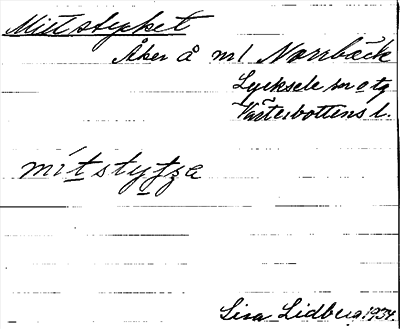 Mittstycket
Åker å m/ Norrbäck
Lycksele sn o tg
Västerbottens l.
mítstytza
Lisa Lidberg 1934.